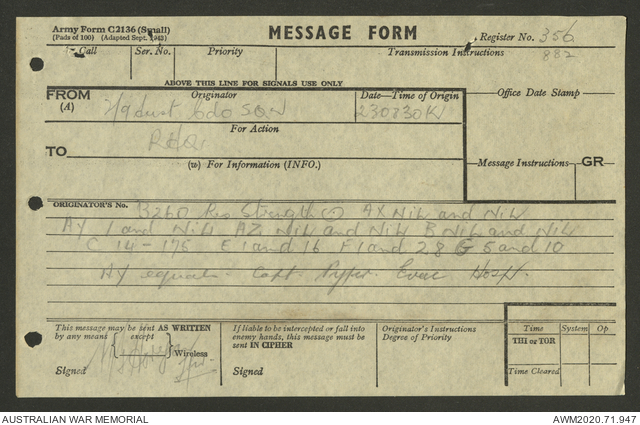 Army Form C2136 (Small)
(Pads of 100) (Adapted Sept. 1943)
MESSAGE FORM
Register No. 356
882
Call Ser. No. Priority Transmission Instructions
ABOVE THIS LINE FOR SIGNALS USE ONLY
FROM
(A)
Originator
Date—Time of Origin
Office Date Stamp—
2/9 Aust Cdo SQN 230830K
For Action
TO
RHQ.
(w) For Information (INFO.)
Message Instructions— GR—
ORIGINATOR'S No. B260 Strength AX NiL and NiL
AY 1 and NiL AZ NiL and NiL B NiL and NiL
C 14 - 175 E 1 and 16 F 1 and 28 G 5 and 10
AY equals - Capt. Evac Hospt.
This message may be sent AS WRITTEN
by any means { except
Wireless
Signed
If liable to be intercepted or fall into
enemy hands, this message must be
sent IN CIPHER
Signed
Originator's Instructions
Degree of Priority
Time System Op
THI or TOR
Time Cleared
AUSTRALIAN WAR MEMORIAL
AWM2020.71.947